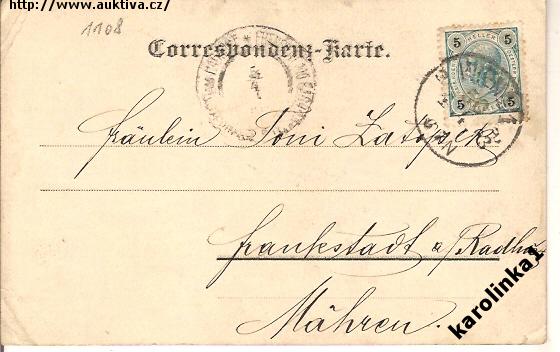 http://www.auktiva.cz/
1108
Correspondenz-Karte.
5 HELLER 5
5 5
Fräulein Toni Zatopek
Frankstadt a/Radh
Mähren.
karolinka1